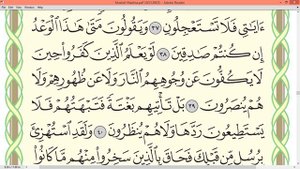 ءَايَٰتِى فَلَا تَسْتَعْجِلُونِ ٣٧ وَيَقُولُونَ مَتَىٰ هَٰذَا ٱلْوَعْدُ
إِن كُنتُمْ صَٰدِقِينَ ٣٨ لَوْ يَعْلَمُ ٱلَّذِينَ كَفَرُوا۟ حِينَ
لَا يَكُفُّونَ عَن وُجُوهِهِمُ ٱلنَّارَ وَلَا عَن ظُهُورِهِمْ وَلَا
هُمْ يُنصَرُونَ ٣٩ بَلْ تَأْتِيهِم بَغْتَةً فَتَبْهَتُهُمْ فَلَا
يَسْتَطِيعُونَ رَدَّهَا وَلَا هُمْ يُنظَرُونَ ٤٠ وَلَقَدِ ٱسْتُهْزِئَ
بِرُسُلٍ مِّن قَبْلِكَ فَحَاقَ بِٱلَّذِينَ سَخِرُوا۟ مِنْهُم مَّا كَانُوا۟